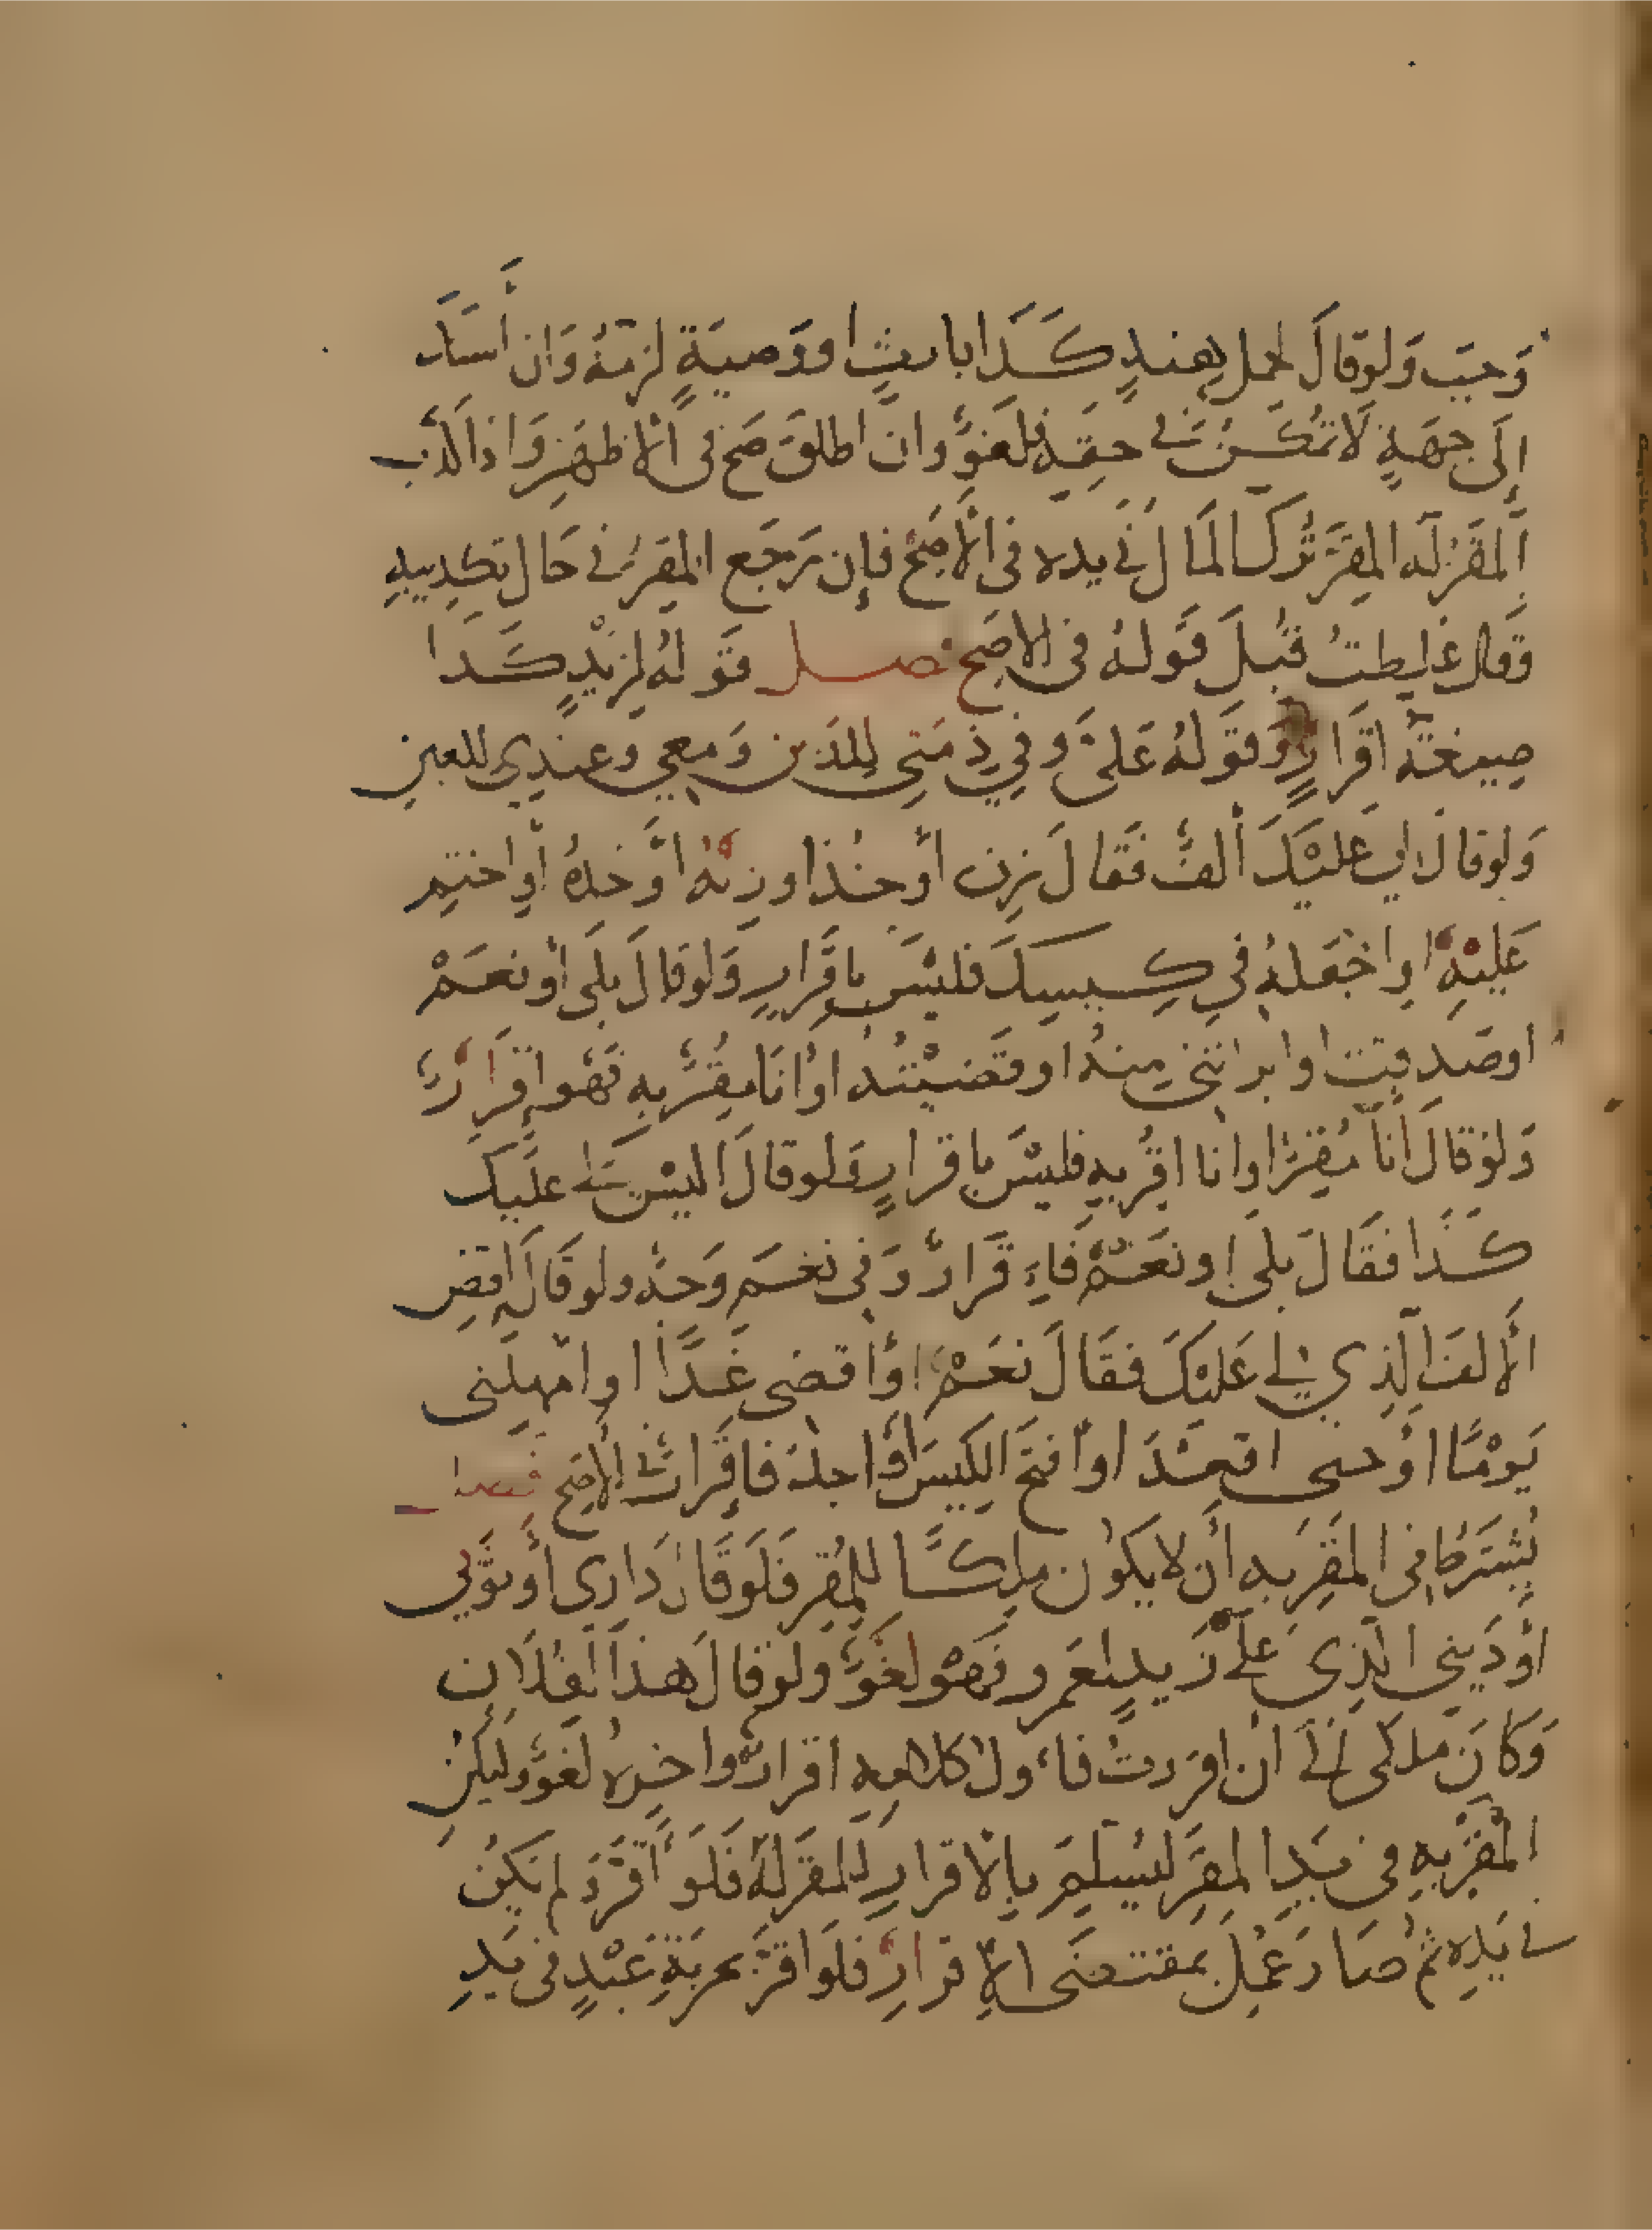 وَجَبَ وَلَوْ قَالَ لحمل هِندٍ كَذَا بارثٍ او وَصيةٍ لزمَهُ وَان أسنَدَ
إلَى جِهَةٍ لَا تمكن في حقِه فلغوٌ وان اطلقَ صَح في الاظهَرِ وَاذا كذب
المقَر لَه المقِرَّ ترك المَالُ في يده في الاصَحِّ فإن رَجَع المقر في حَال تكذيبهِ
وَقال غلِطتُ قبلَ قَولهُ في الاصَح فصل قَولهُ لزيْدٍ كَذَا
صِيغَةُ اقرَارٍ وَقَولهُ عَليَّ وفي ذِمتي للدَين وَمعي وَعندِي للعين
وَلو قالَ لي عليْكَ ألفٌ فَقالَ زِن أو خُذ او زنهُ اوْ خذهُ أو اختِم
عَليْهِ او اجْعَلهُ في كِيسِكَ فليْسَ باقرَارٍ وَلو قالَ بلَى أو نعَمْ
او صَدقت او ابراتني منهُ او قَضَيْتُهُ او انَا مقِرٌّ بهِ فَهو إقرَارٌ
وَلوْ قالَ انَا مُقِرٌّ او انا اقِرُّ بهِ فليْسَ باقرارٍ وَلو قالَ اليْسَ لي عليْكَ
كَذَا فقَالَ بلَى او نعَمْ فَاِقرَارٌ وَفي نعَم وَجهٌ ولو قَالَ اقضِ
الالفَ الذِي لي عَليْكَ فقَالَ نعَمْ اوْ اقضى غدًا او امهلني
يَوْمًا اوْ حتى اقعُدَ او افتحَ الكيسَ أو اجدَ فاقرَارٌ في الاصَح فصل
يُشترَط في المقَر به أن لا يكون ملكًا للمُقِر فَلَو قَالَ دَارى أو ثوْبي
اوْ دَيني الذِي عَلى زَيدٍ لعَمرو فَهْو لغوٌ ولو قالَ هذا لفلَانٍ
وَكانَ ملكى إلى ان اقرَرتُ فاول كلامِه اقرارٌ واخِرهُ لغوٌ وليكن
المُقَرُّ بهِ في يَدِ المقِرِّ ليُسلَّمَ بالاقرارِ للمُقَر لهُ فَلَو أقَرَّ وَلم يكن
في يَدِه ثم صَارَ عُمِلَ بمقتضَى الاقرارِ فلَو اقرَّ بحريَةِ عَبْدٍ في يَدِ